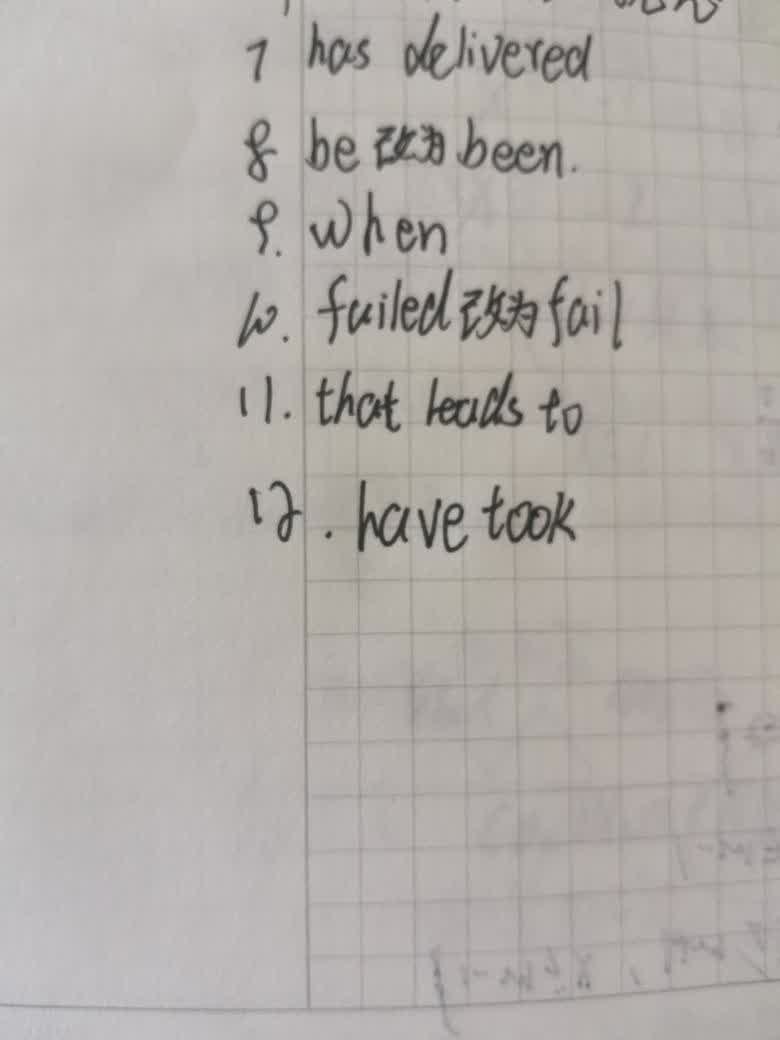 7 has delivered
8 be 改为 been.
9. when
10. failed 改为 fail
11. that leads to
12. have took